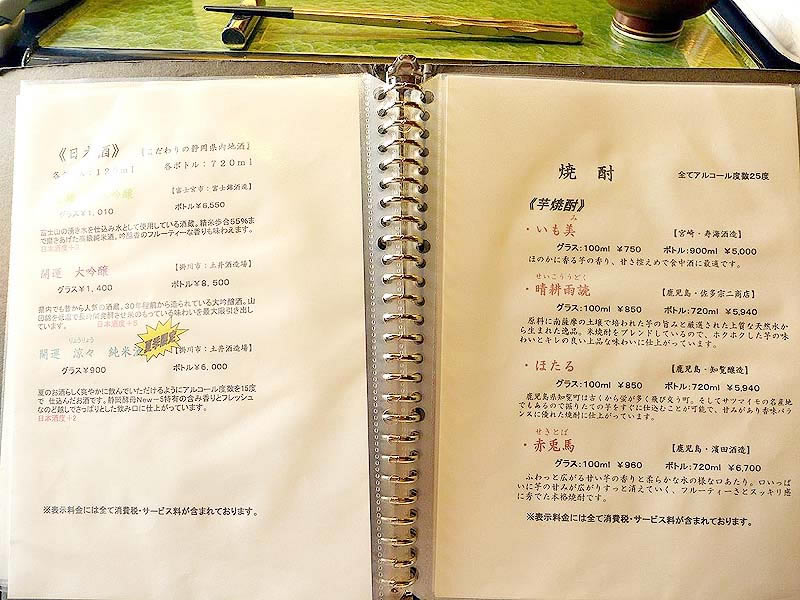 《日本酒》 【こだわりの静岡県内地酒】
各グラス：120ml 各ボトル：720ml
吟醸 【富士宮市：富士錦酒造】
グラス￥1,010 ボトル￥6,550
富士山の湧き水を仕込み水として使用している酒蔵。精米歩合55%ま
で磨きあげた高級純米酒。吟醸香のフルーティーな香りも味わえます。
日本酒度+3
開運 大吟醸 【掛川市：土井酒造場】
グラス￥1,400 ボトル￥8,500
県内でも昔から人気の酒蔵。30年程前から造られている大吟醸酒。山
田錦を低温で長時間発酵させ米のもっている味わいを最大吸引き出し
ています。 日本酒度+5
りょうりょう
開運 涼々 純米 【掛川市：土井酒造場】
夏季限定
グラス￥900 ボトル￥6,000
夏のお酒らしく爽やかに飲んでいただけるようにアルコール度数を15度
で 仕込んだお酒です。静岡酵母New-5特有の含み香りとフレッシュ
なのど越しでさっぱりとした飲み口に仕上がっています。
日本酒度+2
※表示料金には全て消費税・サービス料が含まれております。
焼 酎 全てアルコール度数25度
《芋焼酎》
み
・いも美 【宮崎・寿海酒造】
グラス：100ml ￥750 ボトル：900ml ￥5,000
ほのかに香る芋の香り、甘さ控えめで食中酒に最適です。
せいこううどく
・晴耕雨読 【鹿児島・佐多宗二商店】
グラス：100ml ￥850 ボトル：720ml ￥5,940
原料に南薩摩の土壌で培われた芋の旨みと厳選された上質な天然水か
ら生まれた逸品。米焼酎をブレンドしているので、ホクホクした芋の味
わいとキレの良い上品な味わいに仕上がっています。
・ほたる 【鹿児島・知覧醸造】
グラス：100ml ￥850 ボトル：720ml ￥5,940
鹿児島県知覧町は古くから蛍が多く飛び交う町。そしてサツマイモの名産地
でもあるので掘りたての芋をすぐに仕込むことが可能で、甘みがあり香味バラ
ンスに優れた焼酎に仕上がっています。
せきとば
・赤兎馬 【鹿児島・濱田酒造】
グラス：100ml ￥960 ボトル：720ml ￥6,700
ふわっと広がる甘い芋の香りと柔らかな水の様な口あたり。口いっぱ
いに芋の甘みが広がりすっと消えていく、フルーティーさとスッキリ感
に秀でた本格焼酎です。
※表示料金には全て消費税・サービス料が含まれております。